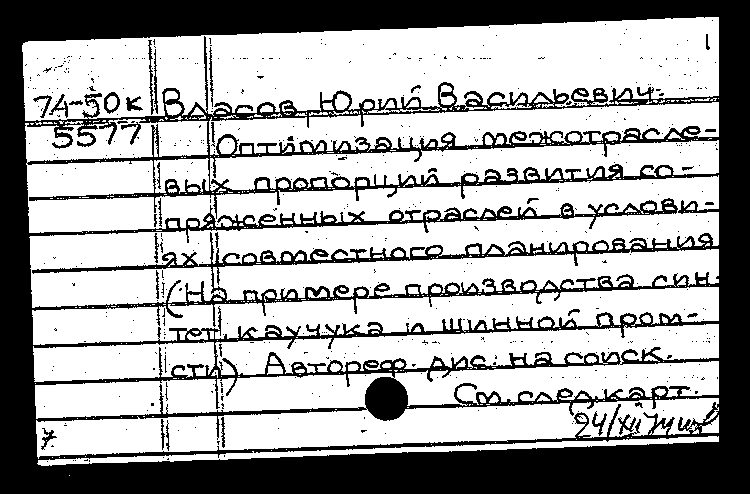 1
74-50к Власов, Юрий Васильевич.
5577 Оптимизация межотрасле-
вых пропорций развития со-
пряженных отраслей в услови-
ях совместного планирования
(На примере производства син-
тет. каучука и шинной пром-
сти). Автореф. дис. на соиск.
См. след. карт.
24/XII 74
7